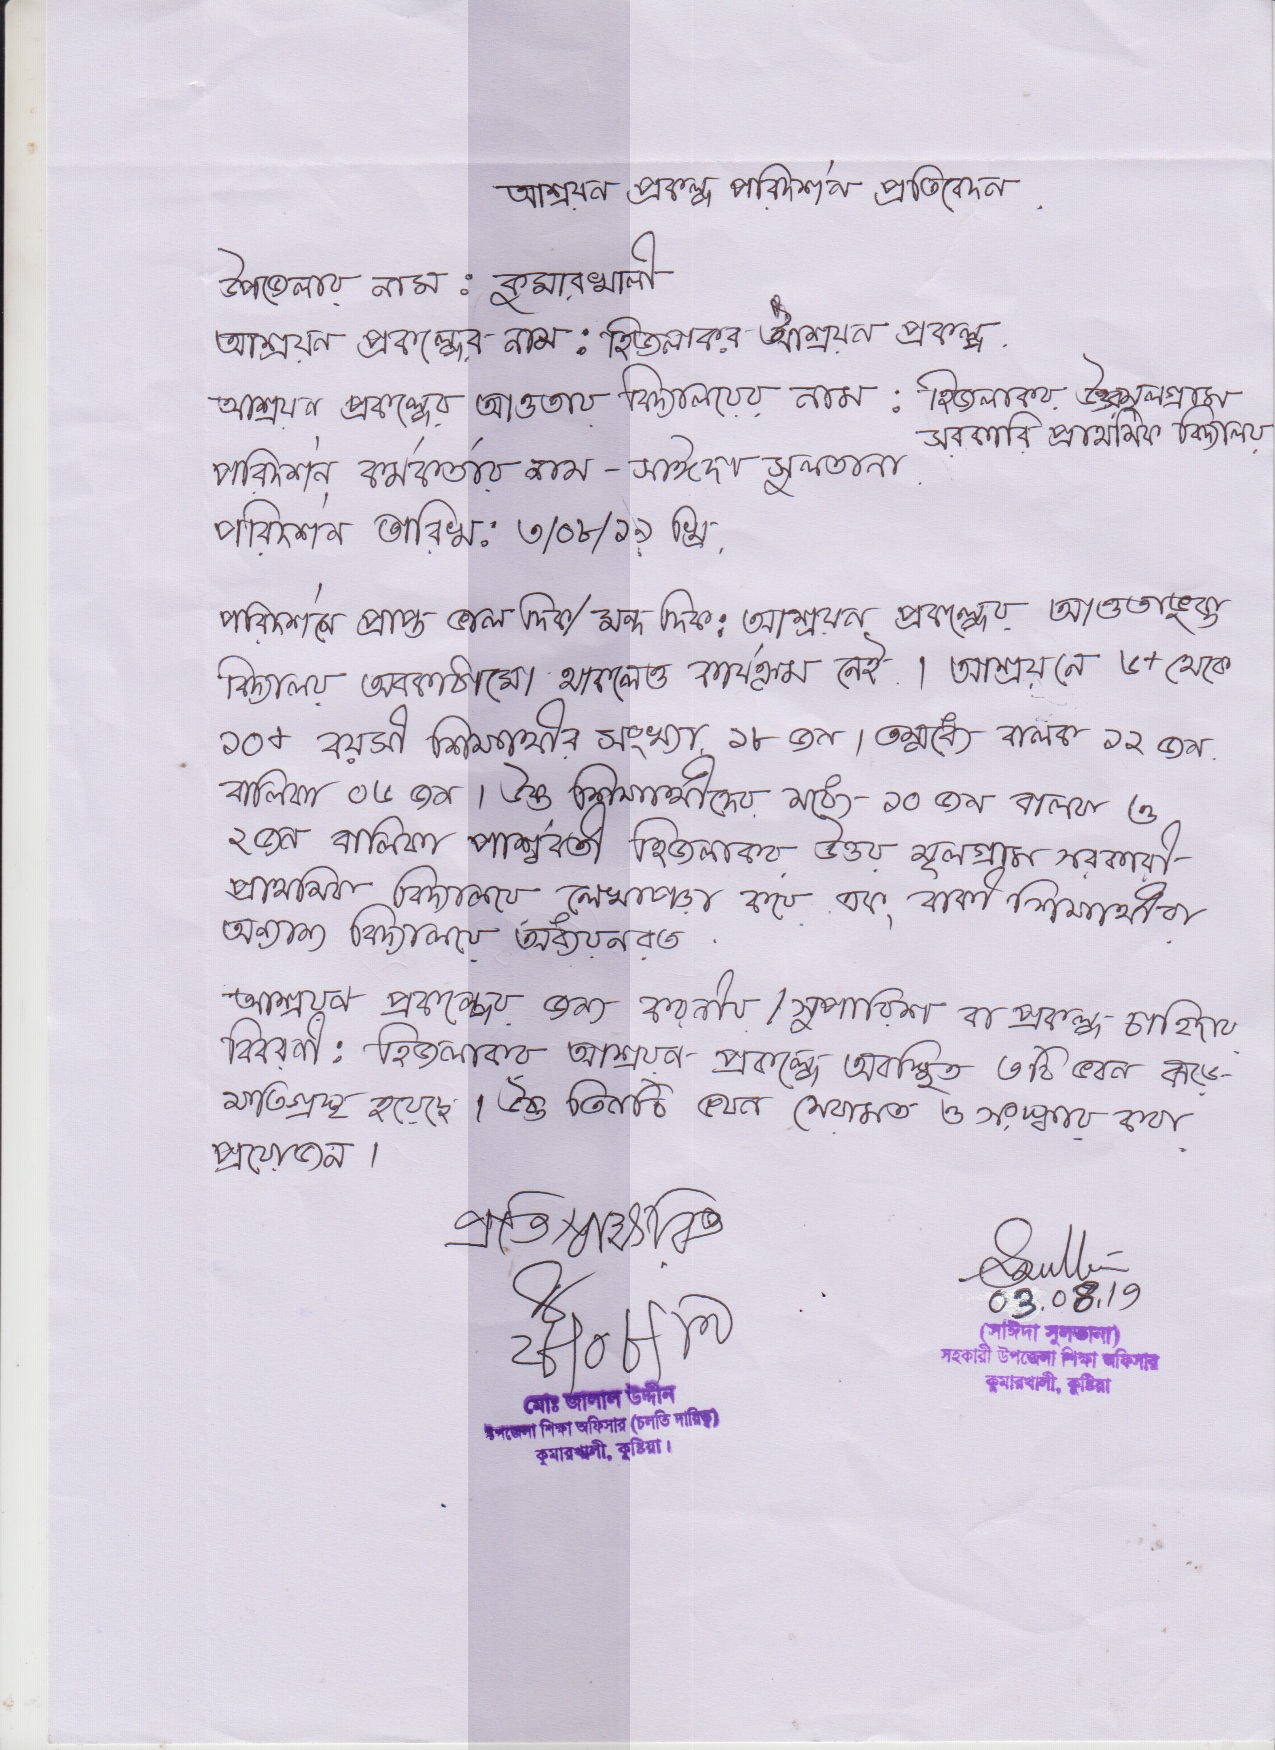 আশ্রয়ন প্রকল্প পরিদর্শন প্রতিবেদন
উপজেলার নাম : কুমারখালী
আশ্রয়ন প্রকল্পের নাম : হিজলাকর আশ্রয়ন প্রকল্প.
আশ্রয়ন প্রকল্পের আওতায় বিদ্যালয়ের নাম : হিজলাকর উত্তরমূলগ্রাম
সরকারি প্রাথমিক বিদ্যালয়
পরিদর্শন কর্মকর্তার নাম - সাঈদা সুলতানা
পরিদর্শন তারিখ: ৩/০৮/১৯ খ্রি.
পরিদর্শনে প্রাপ্ত ভাল দিক/মন্দ দিক: আশ্রয়ন প্রকল্পের আওতাভুক্ত
বিদ্যালয় অবকাঠামো থাকলেও কার্যক্রম নেই । আশ্রয়নে ৬+ থেকে
১০+ বয়সী শিক্ষার্থীর সংখ্যা ১৮ জন । তন্মধ্যে বালক ১২ জন
বালিকা ০৬ জন । উক্ত শিক্ষার্থীদের মধ্যে ১০ জন বালক ও
২জন বালিকা পার্শ্ববর্তী হিজলাকর উত্তর মূলগ্রাম সরকারী
প্রাথমিক বিদ্যালয়ে লেখাপড়া করে এবং বাকী শিক্ষার্থীরা
অন্যান্য বিদ্যালয়ে অধ্যয়নরত
আশ্রয়ন প্রকল্পের জন্য করনীয় / সুপারিশ বা প্রকল্প চাহিদার
বিবরনী : হিজলাকর আশ্রয়ন প্রকল্পে অবস্থিত ৩টি ভবন ঝড়ে
ক্ষতিগ্রস্থ হয়েছে । উক্ত তিনটি ভবন মেরামত ও সংস্কার করা
প্রয়োজন ।
প্রতিস্বাক্ষরিত
03.08.19
২৮/০৮/১৯
(সাঈদা সুলতানা)
সহকারী উপজেলা শিক্ষা অফিসার
কুমারখালী, কুষ্টিয়া
মোঃ জালাল উদ্দীন
উপজেলা শিক্ষা অফিসার (চলতি দায়িত্ব)
কুমারখালী, কুষ্টিয়া।